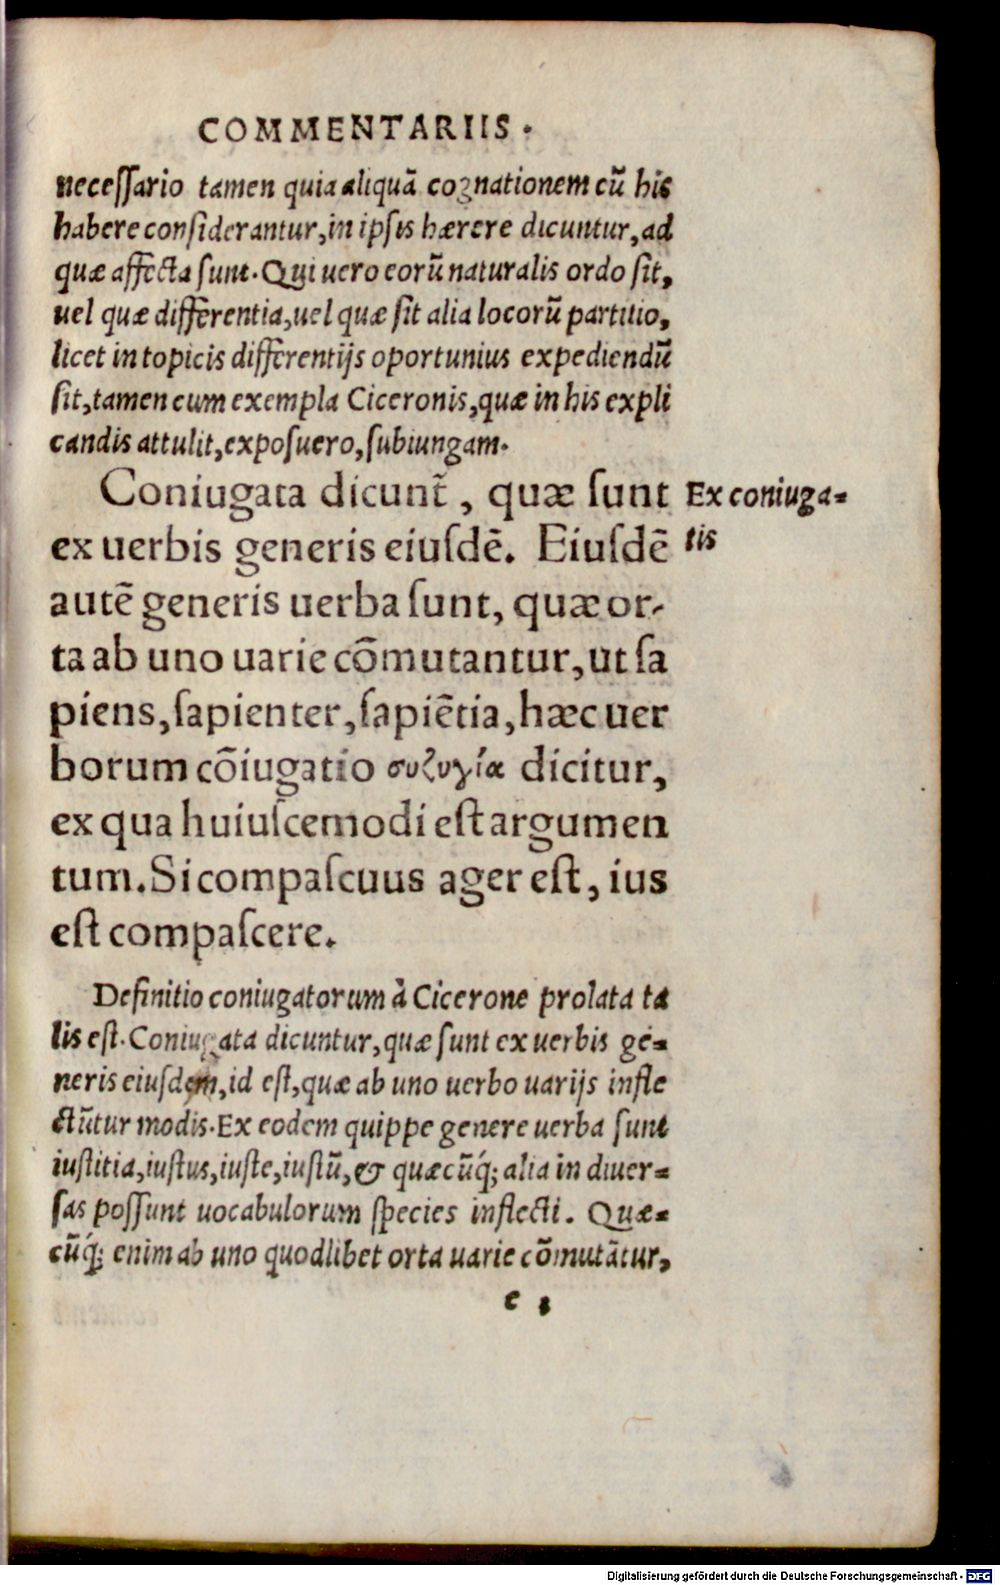 COMMENTARIIS.
neceſſario tamen quia aliquā cognationem cū his
habere conſiderantur, in ipſis hærere dicuntur, ad
quæ affecta ſunt. Qui uero eorū naturalis ordo ſit,
uel quæ differentia, uel quæ ſit alia locorū partitio,
licet in topicis differentijs oportunius expediendū
ſit, tamen cum exempla Ciceronis, quæ in his expli
candis attulit, expoſuero, ſubiungam.
Coniugata dicunt̃, quæ ſunt
Ex coniuga-
tis
ex uerbis generis eiuſdē. Eiuſdē
autē generis uerba ſunt, quæ or-
ta ab uno uarie cōmutantur, ut ſa
piens, ſapienter, ſapiētia, hæc uer
borum cōiugatio συζυγία dicitur,
ex qua huiuſcemodi eſt argumen
tum. Si compaſcuus ager eſt, ius
eſt compaſcere.
Definitio coniugatorum à Cicerone prolata ta
lis eſt. Coniugata dicuntur, quæ ſunt ex uerbis ge-
neris eiuſdem, id eſt, quæ ab uno uerbo uarijs infle
ctūtur modis. Ex eodem quippe genere uerba ſunt
iuſtitia, iuſtus, iuſte, iuſtū, & quæcūq́; alia in diuer-
ſas poſſunt uocabulorum ſpecies inflecti. Quæ-
cūq́; enim ab uno quodlibet orta uarie cōmutātur,
e 1
Digitalisierung gefördert durch die Deutsche Forschungsgemeinschaft - DFG